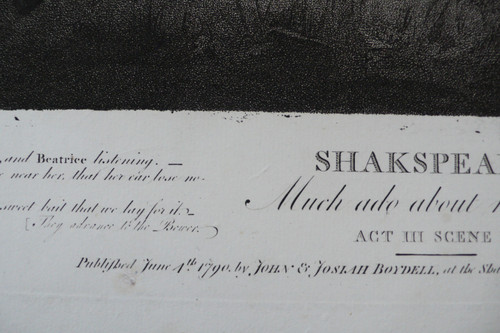 and Beatrice listening. —
near her, that her ear lose no-
sweet bait that we lay for it. —
[They advance to the Bower.]
SHAKSPEA
Much ado about
ACT III SCENE
Published June 4th 1790, by JOHN & JOSIAH BOYDELL, at the Sha